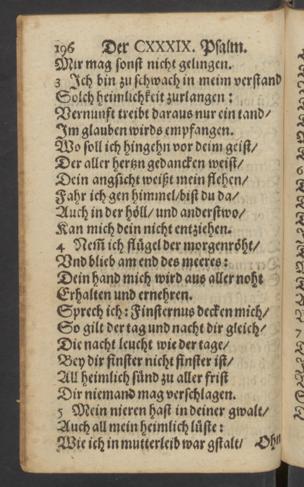 196 Der CXXXIX. Psalm.
Mir mag sonst nicht gelingen.
3 Ich bin zu schwach in meim verstand
Solch heimlichkeit zurlangen:
Vernunfft treibt daraus nur ein tand/
Im glauben wirds empfangen.
Wo soll ich hingehn vor deim geist/
Der aller hertzn gedancken weist/
Dein angsicht weißt mein flehen/
Fahr ich gen himmel/bist du da/
Auch in der höll/ und anderstwo/
Kan mich dein nicht entziehen.
4 Nem̃ ich flügel der morgenröht/
Vnd blieb am end des meeres:
Dein hand mich wird aus aller noht
Erhalten und ernehren.
Sprech ich: Finsternus decken mich/
So gilt der tag und nacht dir gleich/
Die nacht leucht wie der tage/
Bey dir finster nicht finster ist/
All heimlich sünd zu aller frist
Dir niemand mag verschlagen.
5 Mein nieren hast in deiner gwalt/
Auch all mein heimlich lüste:
Wie ich in mutterleib war gstalt/
Ohn